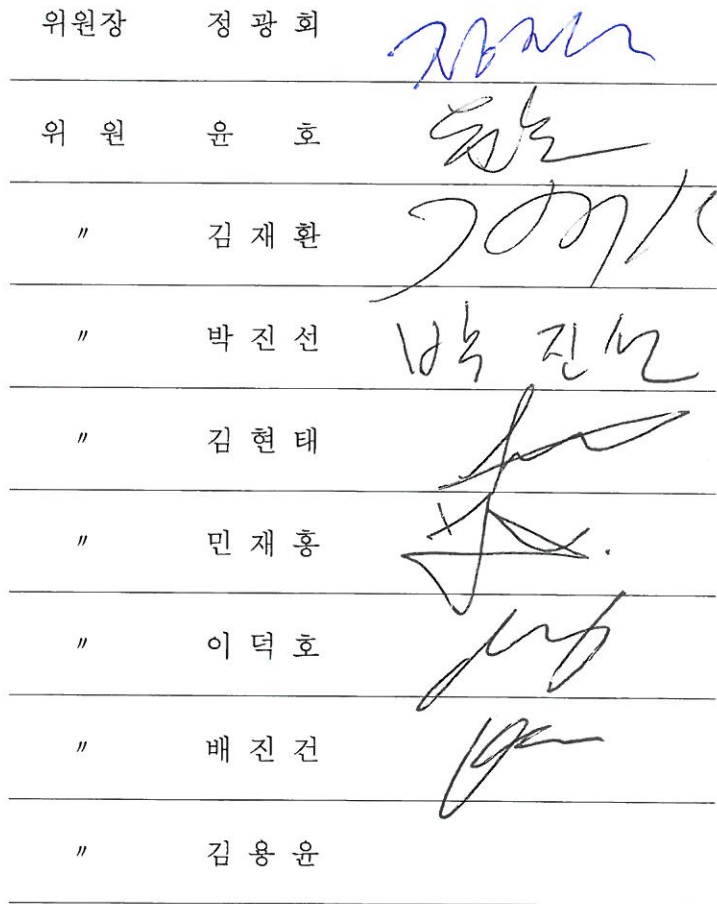 위원장 정광회
위 원 윤 호
〃 김재환
〃 박진선 박진선
〃 김현태
〃 민재홍
〃 이덕호
〃 배진건
〃 김용윤